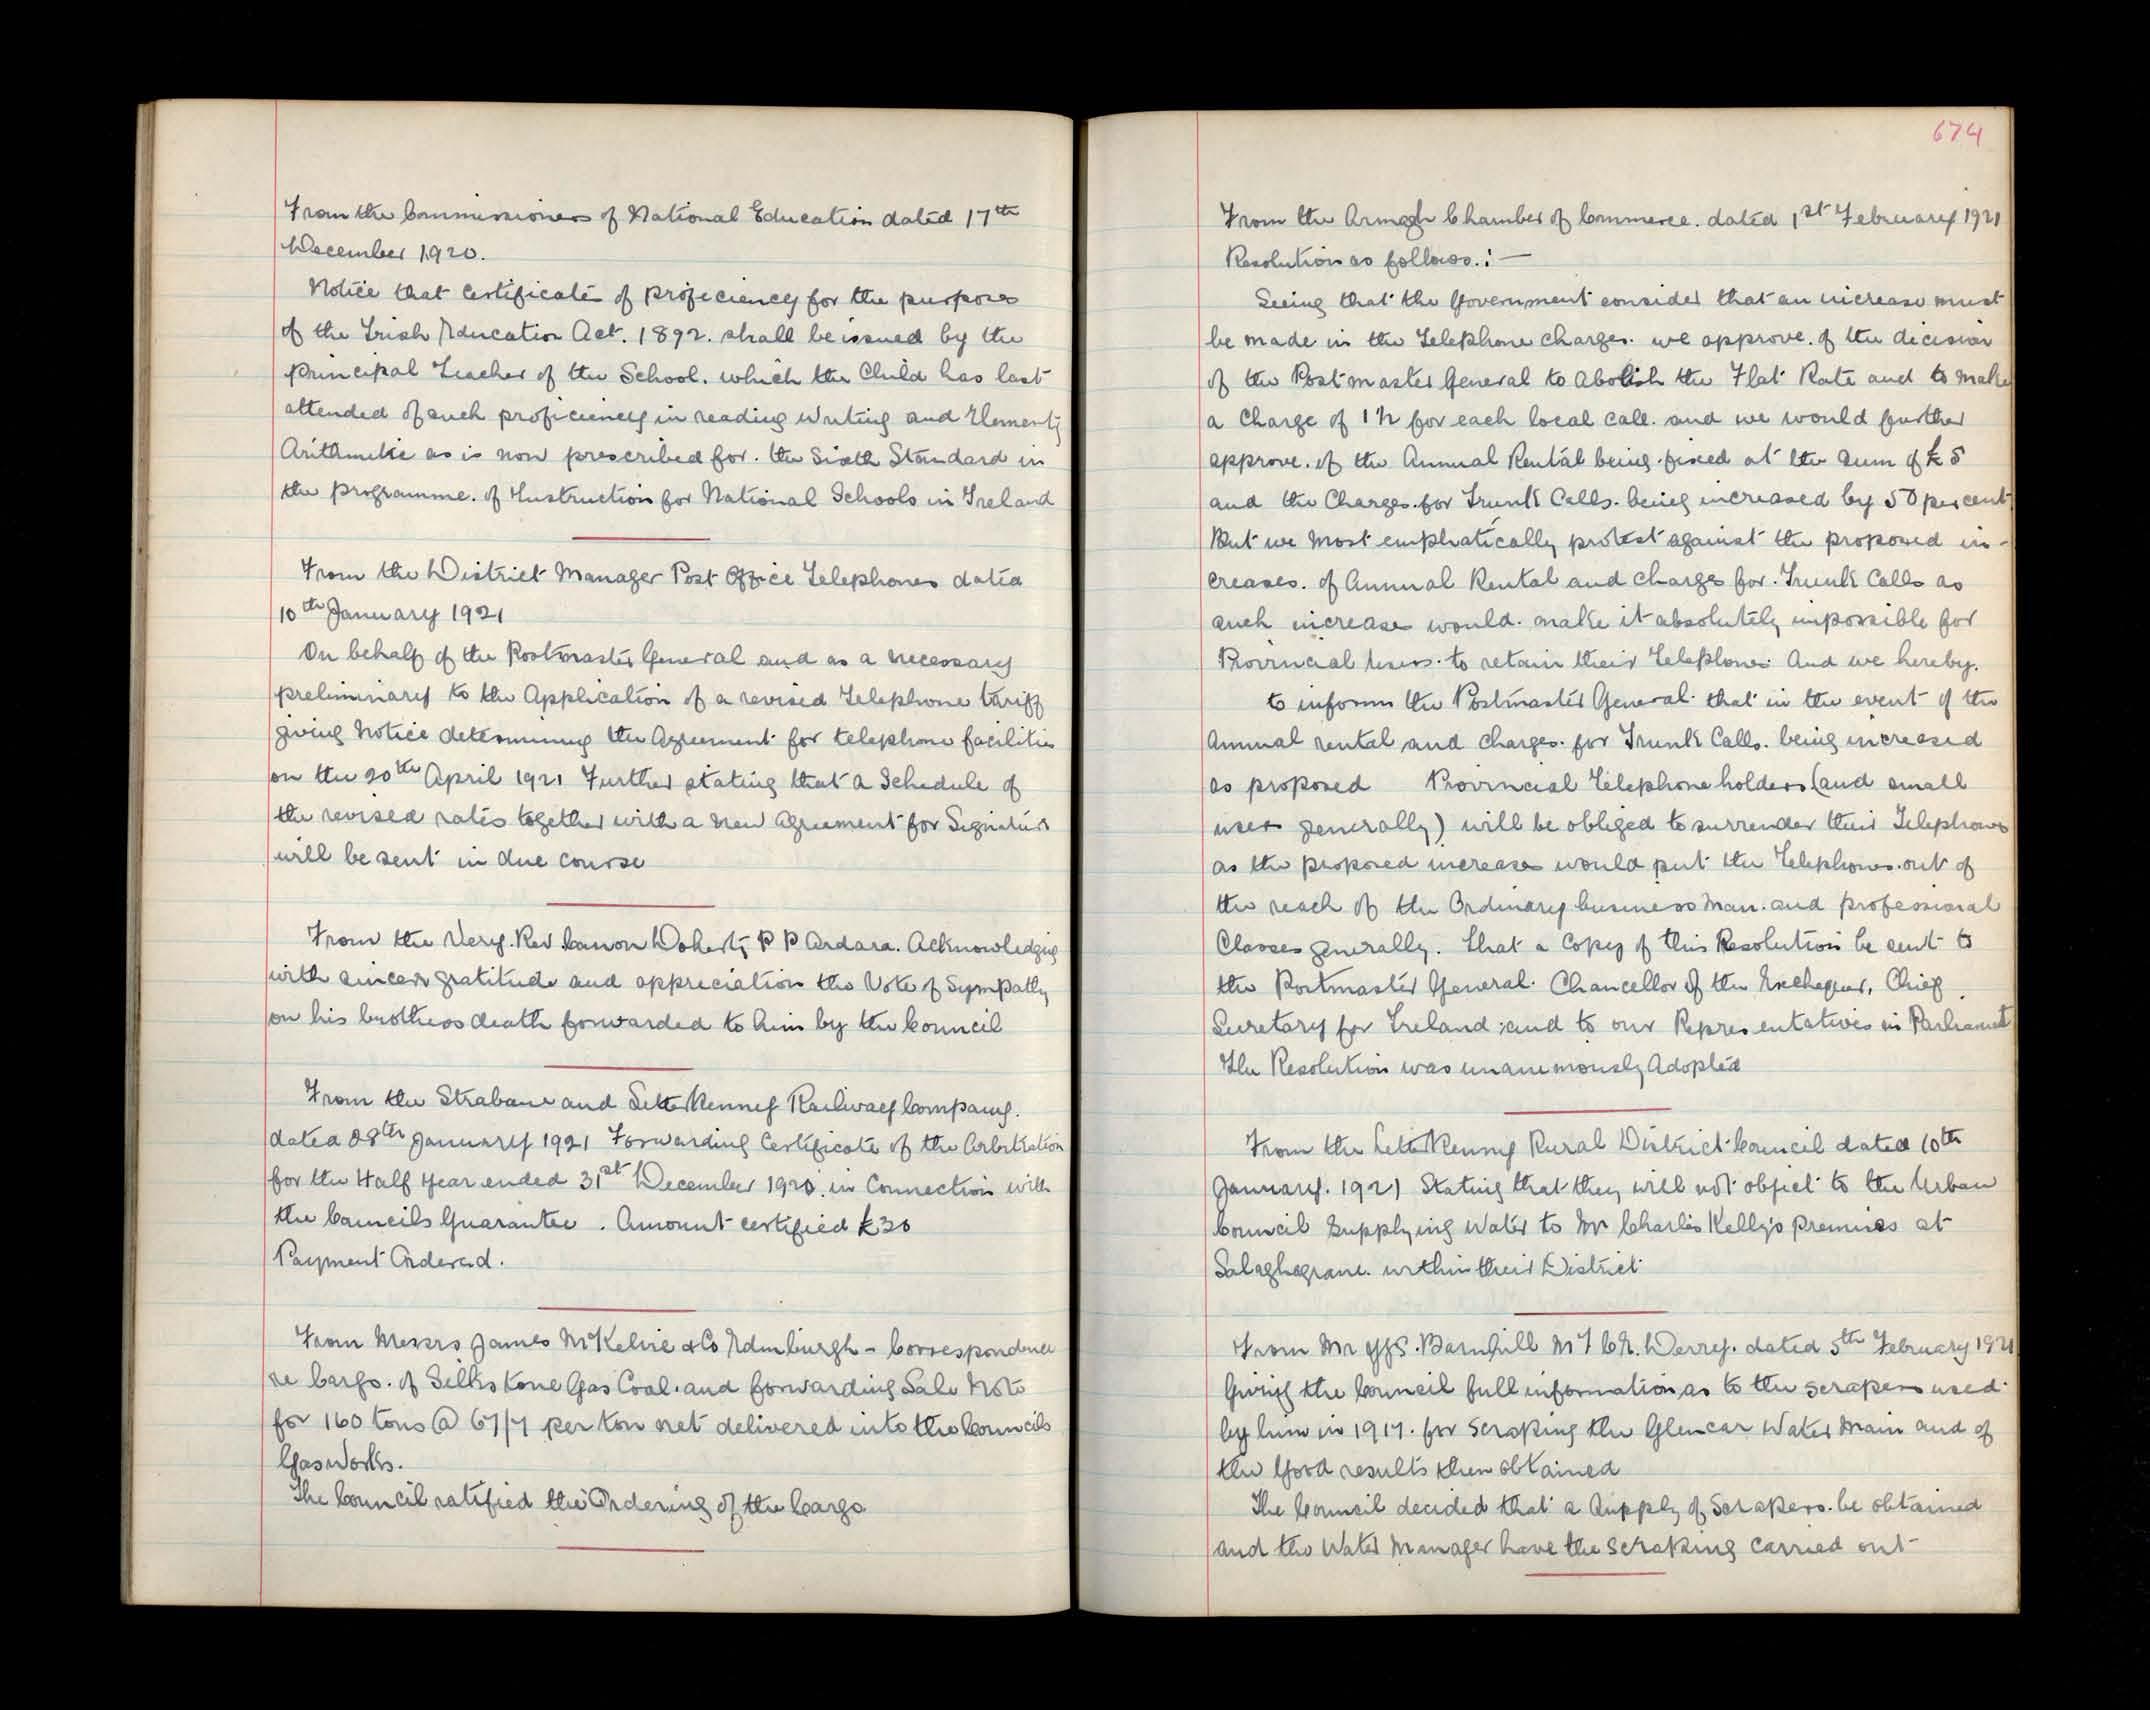 From the Commissioners of National Education dated 17th
December 1920.
Notice that Certificates of proficiency for the purposes
of the Irish Education Act. 1892. shall be issued by the
Principal Teacher of the School. which the Child has last
attended of such proficiency in reading writing and Elementy
Arithmetic as is now prescribed for. the Sixth Standard in
the programme. of Instruction for National Schools in Ireland
From the District Manager Post Office Telephones dated
10th January 1921
On behalf of the Postmaster General and as a necessary
preliminary to the Application of a revised Telephone tariff
giving Notice determining the Agreement for telephone facilities
on the 20th April 1921 Further stating that a Schedule of
the revised rates together with a new agreement for Signature
will be sent in due course
From the Very. Rev Canon Doherty P P Ardara. Acknowledging
with sincere gratitude and appreciation the Vote of Sympathy
on his brothers death forwarded to him by the Council
From the Strabane and Letterkenny Railway Company.
dated 28th January 1921 Forwarding Certificate of the Arbitration
for the Half Year ended 31st December 1920. in Connection with
the Councils Guarantee . Amount certified £30
Payment Ordered.
From Messrs James McKelvie & Co Edinburgh - Correspondence
re Cargo. of Silkstone Gas Coal. and forwarding Sale Note
for 160 tons @ 67/7 per ton net delivered into the Councils
Gasworks.
The Council ratified the Ordering of the Cargo
674
From the Armagh Chamber of Commerce. dated 1st February 1921
Resolution as follows.:—
Seeing that the Government consider that an increase must
be made in the Telephone charges. we approve. of the decision
of the Postmaster General to Abolish the Flat Rate and to make
a Charge of for each local call. and we would further
approve. of the Annual Rental being. fixed at the sum of £5
and the Charges. for Trunk Calls. being increased by 50 per cent
But we most emphatically protest against the proposed in-
creases. of Annual Rental and charges for. Trunk Calls as
such increase would. make it absolutely impossible for
Provincial Users. to retain their Telephones And we hereby.
to inform the Postmaster General. that in the event of the
Annual rental and charges. for Trunk Calls. being increased
as proposed Provincial Telephone holders (and small
users generally) will be obliged to surrender their Telephones
as the proposed increases would put the Telephones. out of
the reach of the Ordinary business Man. and professional
Classes generally. that a Copy of this Resolution be sent to
the Postmaster General. Chancellor of the Exchequer, Chief
Secretary for Ireland; and to our Representatives in Parliament
The Resolution was unanimously Adopted
From the Letterkenny Rural District Council dated 10th
January. 1921 Stating that they will not object to the Urban
Council Supplying Water to Mr Charles Kelly's premises at
within their District
From Mr Barnhill M I C E. Derry. dated 5th February 1921
Giving the Council full information as to the scrapers used
by him in 1917. for scraping the Glencar Water Main and of
the good results then obtained
The Council decided that a Supply of Scrapers. be obtained
and the Water Manager have the Scraping carried out